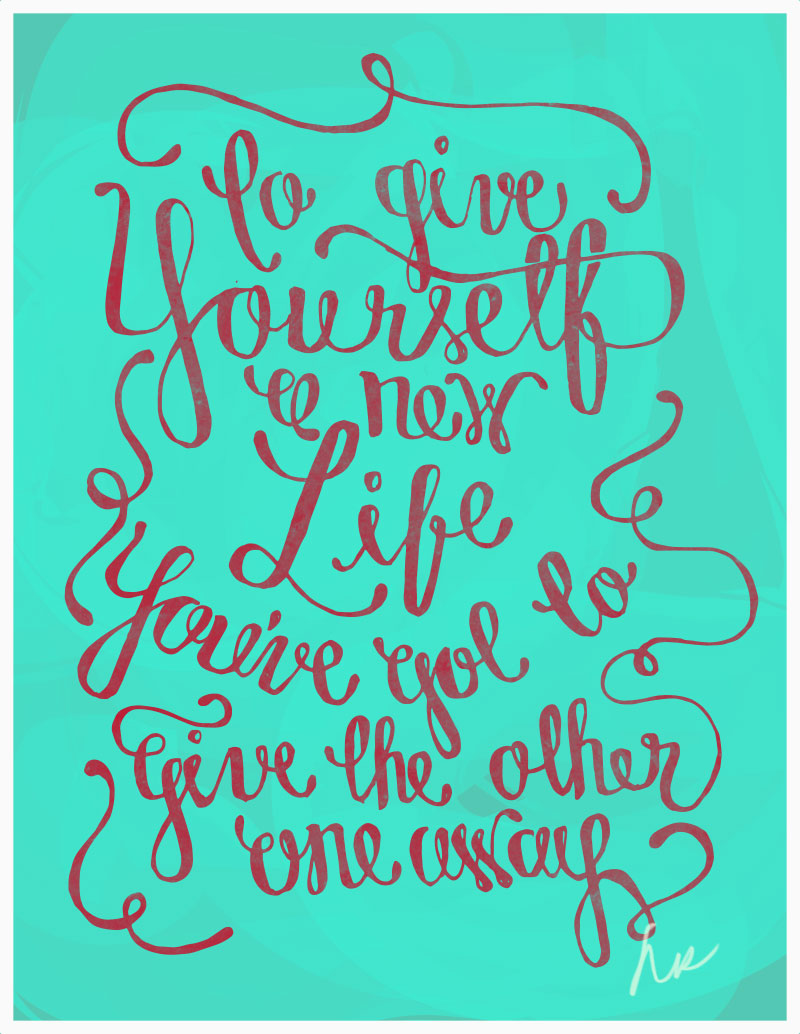 to give
Yourself
a new
Life
You've got to
give the other
one away
hk